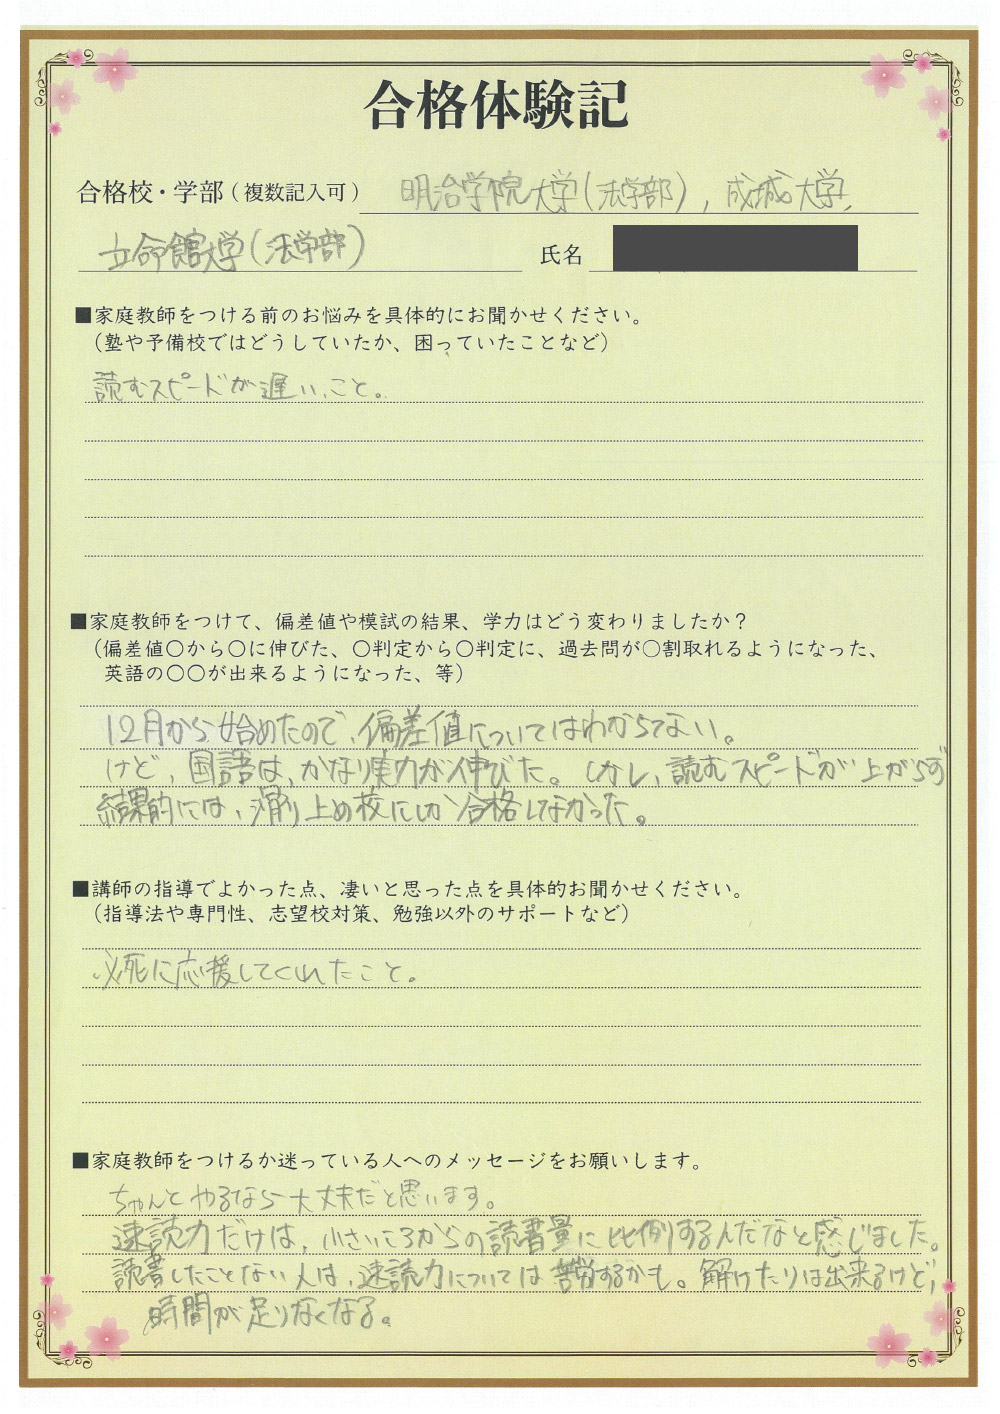 合格体験記
合格校・学部（複数記入可） 明治学院大学(法学部), 成城大学,
立命館大学(法学部) 氏名
■家庭教師をつける前のお悩みを具体的にお聞かせください。
（塾や予備校ではどうしていたか、困っていたことなど）
読むスピードが遅いこと。
■家庭教師をつけて、偏差値や模試の結果、学力はどう変わりましたか？
（偏差値〇から〇に伸びた、〇判定から〇判定に、過去問が〇割取れるようになった、
英語の〇〇が出来るようになった、等）
12月から始めたので、偏差値についてはわからない。
けど、国語は、かなり実力が伸びた。しかし、読むスピードが上がらず
結果的には、滑り止め校にしか合格しなかった。
■講師の指導でよかった点、凄いと思った点を具体的お聞かせください。
（指導法や専門性、志望校対策、勉強以外のサポートなど）
必死に応援してくれたこと。
■家庭教師をつけるか迷っている人へのメッセージをお願いします。
ちゃんとやるなら大丈夫だと思います。
速読力だけは、小さいころからの読書量に比例するんだなと感じました。
読書したことない人は、速読力については苦労するかも。解けたりは出来るけど、
時間が足りなくなる。